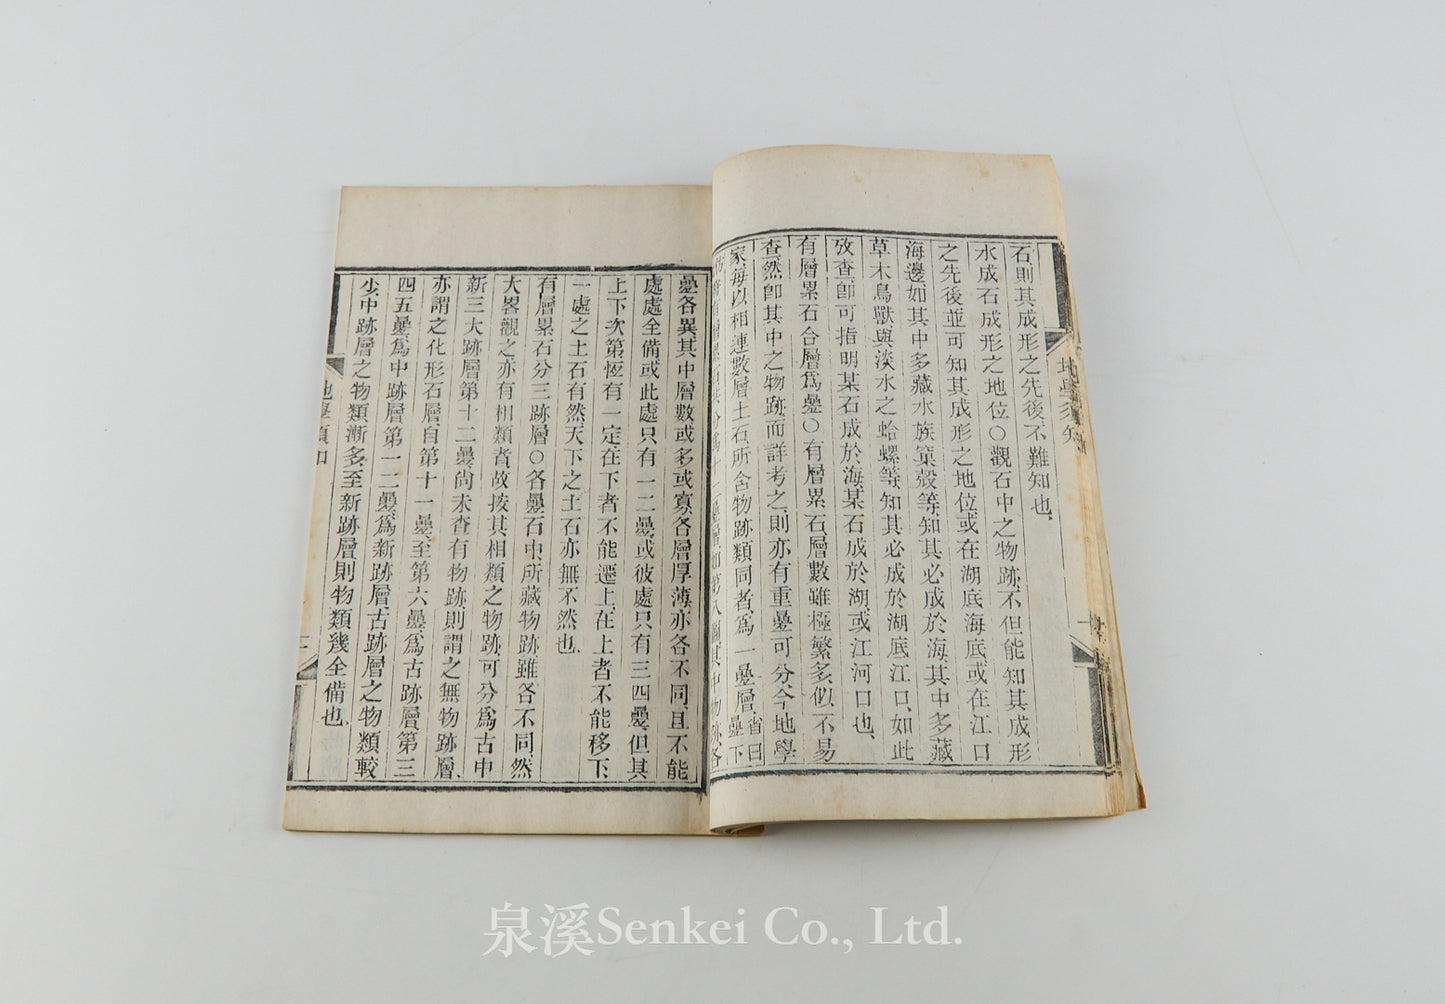 石則其成形之先後不難知也
水成石成形之地位〇觀石中之物跡不但能知其成形
之先後並可知其成形之地位或在湖底海底或在江口
海邊如其中多藏水族窠殼等知其必成於海其中多藏
草木鳥獸與淡水之蛤螺等知其必成於湖底江口如此
攷查卽可指明某石成於海某石成於湖或江河口也
有層累石合層爲疊〇有層累石層數雖極繁多似不易
查然卽其中之物跡而詳考之則亦有重疊可分今地學
家每以相連數層土石所含物跡類同者爲一疊層省曰疊下
有層累石其分爲十二疊層如第八圖其中物跡各
疊各異其中層數或多或寡各層厚薄亦各不同且不能
處處全備或此處只有一二疊或彼處只有三四疊但其
上下次第恆有一定在下者不能遷上在上者不能移下
一處之土石有然天下之土石亦無不然也
有層累石分三跡層〇各疊石中所藏物跡雖各不同然
大畧觀之亦有相類者故按其相類之物跡可分爲古中
新三大跡層第十二疊尚未查有物跡則謂之無物跡層
亦謂之化形石層自第十一疊至第六疊爲古跡層第三
四五疊爲中跡層第一二疊爲新跡層古跡層之物類較
少中跡層之物類漸多至新跡層則物類幾全備也
地學須知
泉溪Senkei Co., Ltd.